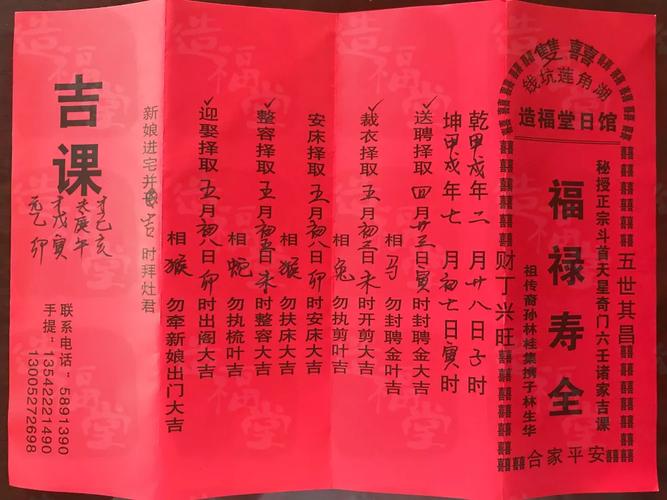 雙囍
湖角莲坑钱
造福堂日馆
五世其昌
秘授正宗斗首天星奇门六壬诸家吉课
福禄寿全
祖传裔孙林桂集携子林生华
合家平安
财丁兴旺
乾甲戌年二月廿八日子时
坤甲戌年七月初七日寅时
✓送聘择取四月廿三日寅时封聘金大吉
相马勿封聘金叶吉
✓裁衣择取五月初三日未时开剪大吉
相兔勿执剪叶吉
安床择取五月初八日卯时安床大吉
相猴勿扶床大吉
✓整容择取五月初五日未时整容大吉
相蛇勿执梳叶吉
✓迎娶择取五月初八日卯时出阁大吉
相猴勿牵新娘出门大吉
新娘进宅并吉时拜灶君
吉课
辛乙亥
庚午
戊寅
乙卯
联系电话：5891390
手提：13542221490
13005272698
造福堂
造福堂
造福堂
造福堂